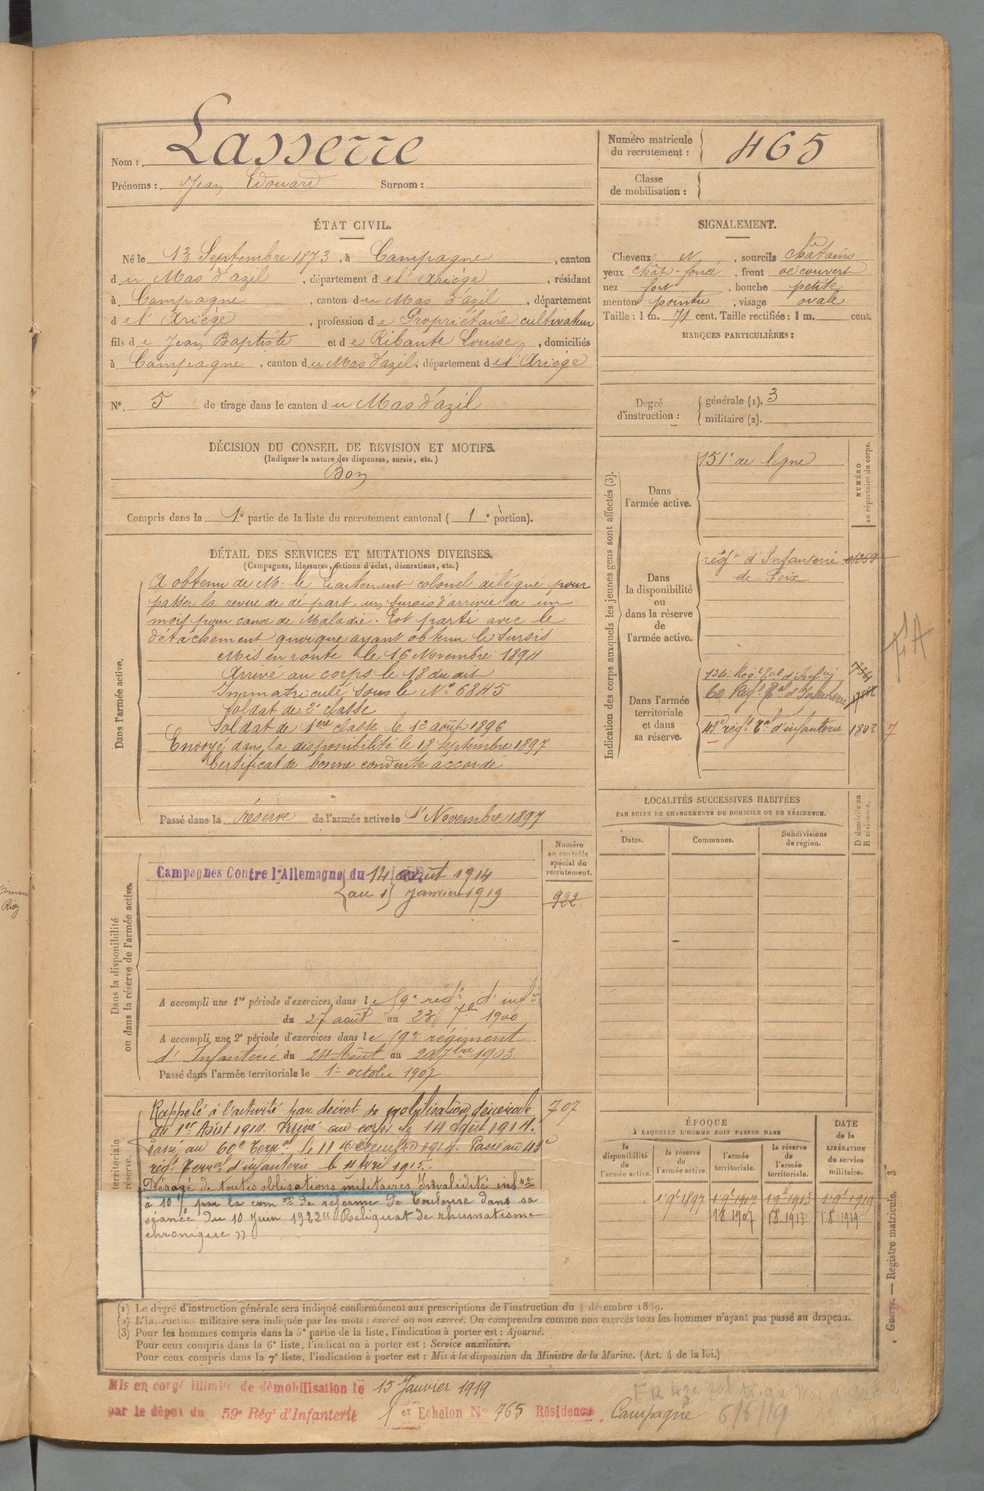 Nom : Lasserre
Prénoms : Jean Edouard Surnom :
Numéro matricule du recrutement : 465
Classe de mobilisation :
ÉTAT CIVIL.
Né le 13 Septembre 1873, à Campagne, canton
du Mas d'azil, département de l'Ariège, résidant
à Campagne, canton du Mas d'azil, département
de l'Ariège, profession de Propriétaire cultivateur
fils de Jean Baptiste et de Ribaute Louise, domiciliés
à Campagne, canton du Mas d'azil, département de l'Ariège
N° 5 de tirage dans le canton du Mas d'azil
SIGNALEMENT.
Cheveux N, sourcils châtains
yeux chât-foncé, front découvert
nez fort, bouche petite
menton pointu, visage ovale
Taille : 1 m. 71 cent. Taille rectifiée : 1 m. cent.
MARQUES PARTICULIÈRES :
Degré d'instruction : générale (1). 3
militaire (2).
DÉCISION DU CONSEIL DE REVISION ET MOTIFS.
(Indiquer la nature des dispenses, sursis, etc.)
Bon
Compris dans la 1e partie de la liste du recrutement cantonal ( 1e portion).
DÉTAIL DES SERVICES ET MUTATIONS DIVERSES.
(Campagnes, blessures, actions d'éclat, décorations, etc.)
Dans l'armée active.
A obtenu de M. le Lieutenant colonel délégué pour
passer la revue de départ, un sursis d'arrivée de un
mois pour cause de Maladie. Est parti avec le
détachement quoique ayant obtenu le sursis
Mis en route le 16 Novembre 1894
Arrivé au corps le 18 du dit
Immatriculé sous le N° 6845
Soldat de 2e classe
Soldat de 1ère classe le 12 août 1896
Envoyé dans la disponibilité le 18 septembre 1897
Certificat de bonne conduite accordé
Passé dans la réserve de l'armée active le 1er Novembre 1897
Indication des corps auxquels les jeunes gens sont affectés (3).
NUMÉRO au répertoire du corps.
Dans l'armée active.
151e de ligne
Dans la disponibilité ou dans la réserve de l'armée active.
régt d'Infanterie
de Foix
Dans l'armée territoriale et dans sa réserve.
134e Régt Tal d'Infie
60 Régt Tal d'Infanterie
43e régt Tal d'infanterie 1802
LOCALITÉS SUCCESSIVES HABITÉES
PAR SUITE DE CHANGEMENTS DE DOMICILE OU DE RÉSIDENCE.
Dates.
Communes.
Subdivisions de région.
D domicile ou R résidence.
Dans la disponibilité ou dans la réserve de l'armée active.
Numéro au contrôle spécial du recrutement.
922
Campagnes Contre l'Allemagne du 14 août 1914
au 15 Janvier 1919
A accompli une 1re période d'exercices dans le 59e régt d'infie
du 27 août au 23 7bre 1900
A accompli une 2e période d'exercices dans le 59e régiment
d'Infanterie du 24 Août au 20 7bre 1903
Passé dans l'armée territoriale le 1er octobre 1907
territoriale réserve.
707
Rappelé à l'activité par décret de mobilisation générale
du 1er Août 1914. Arrivé au corps le 14 Août 1914.
Passé au 60e Terral le 11 1914. Passé au 43e
régt Terral d'infanterie le 4 Avril 1915.
Dégagé de toutes obligations militaires invalidité infre
à 10% par la comon de réforme de Toulouse dans sa
séance du 10 Juin 1922 "Reliquat de rhumatisme
chronique"
ÉPOQUE
À LAQUELLE L'HOMME DOIT PASSER DANS
la disponibilité de l'armée active.
la réserve de l'armée active.
l'armée territoriale.
la réserve de l'armée territoriale.
DATE de la LIBÉRATION du service militaire.
1 9 1897 1 9 1907 1 9 1913 1 9 1919
1 8 1907 1 8 1913 1 8 1919
(1) Le degré d'instruction générale sera indiqué conformément aux prescriptions de l'instruction du 4 décembre 1889.
(2) L'instruction militaire sera indiquée par les mots : exercé ou non exercé. On comprendra comme non exercés tous les hommes n'ayant pas passé au drapeau.
(3) Pour les hommes compris dans la 5e partie de la liste, l'indication à porter est : Ajourné.
Pour ceux compris dans la 6e liste, l'indication à porter est : Service auxiliaire.
Pour ceux compris dans la 7e liste, l'indication à porter est : Mis à la disposition du Ministre de la Marine. (Art. 4 de la loi.)
Guerre. — Registre matricule. 3
Mis en congé illimité de démobilisation le 15 Janvier 1919
par le dépôt du 59e Régt d'Infanterie 1er Echelon N° 765 Résidence Campagne
6/6/19